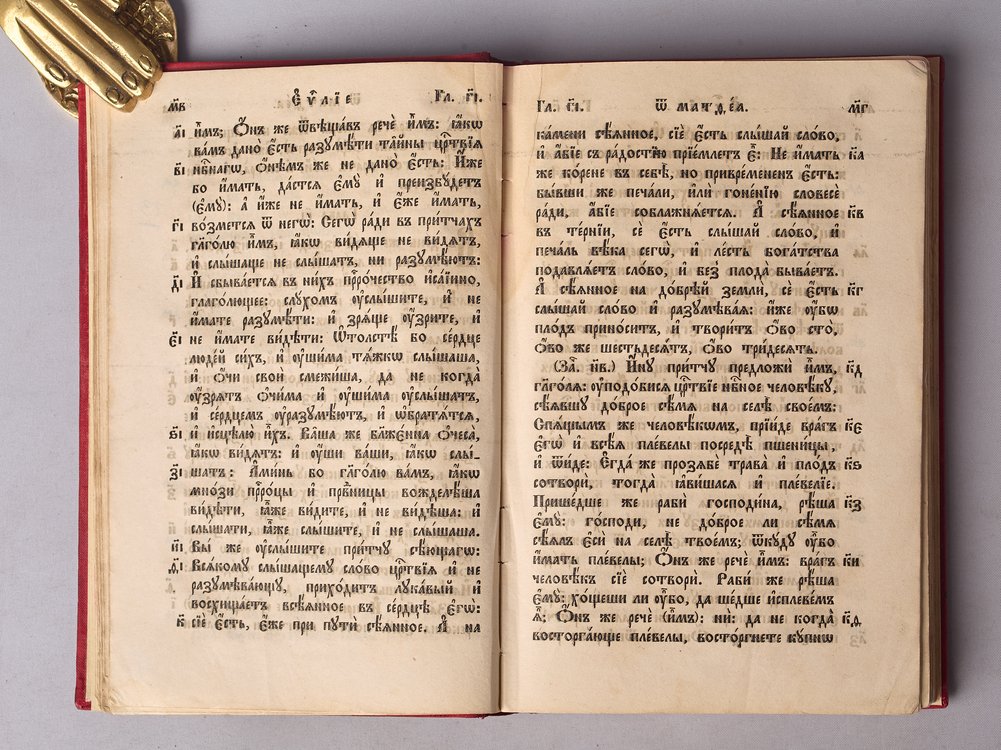 м҃в Є҆ѵⷢ҇лїе Гл. г҃і.
а҃і и҆̀мъ; Ѻ҆́нъ же ѿвѣща́въ речѐ и҆̀мъ: ꙗ҆́кѡ
ва́мъ дано̀ є҆́сть разꙋмѣ́ти та̑йны црⷭ҇твїѧ
в҃і нбⷭ҇нагѡ, ѻ҆нѣ̑мъ же не дано̀ є҆́сть: И҆́же
бо и҆́мать, да́стсѧ є҆мꙋ̀ и҆ преизбꙋ́детъ
(є҆мꙋ̀): а҆ и҆́же не и҆́мать, и҆ є҆́же и҆́мать,
г҃і во́зметсѧ ѿ негѡ̀: Сегѡ̀ ра́ди въ при́тчахъ
гл҃го́лю и҆̀мъ, ꙗ҆́кѡ ви́дѧще не ви́дѧтъ,
и҆ слы́шаще не слы́шатъ, ни разꙋмѣ́ютъ:
д҃і И҆ сбыва́етсѧ въ ни́хъ прⷪ҇ро́чество и҆са́їино,
глаго́лющее: слꙋ́хомъ ᲂу҆слы́шите, и҆ не
и҆́мате разꙋмѣ́ти: и҆ зрѧ́ще ᲂу҆́зрите, и҆
є҃і не и҆́мате ви́дѣти: Ѡ҆толстѣ́ бо се́рдце
люде́й си́хъ, и҆ ᲂу҆ши́ма тѧ́жкѡ слы́шаша,
и҆ ѻ҆́чи своѝ смежи́ша, да не когда̀
ᲂу҆́зрѧтъ ѻ҆чи́ма и҆ ᲂу҆ши́ма ᲂу҆слы́шатъ,
и҆ се́рдцемъ ᲂу҆разꙋмѣ́ютъ, и҆ ѡ҆братѧ́тсѧ,
ѕ҃і и҆ и҆сцѣлю̀ и҆̀хъ. Ва̑ша же бл҃же́нна ѻ҆чеса̀,
ꙗ҆́кѡ ви́дѧтъ: и҆ ᲂу҆́ши ва́ши, ꙗ҆́кѡ слы́_
з҃і шатъ: А҆ми́нь бо гл҃го́лю ва́мъ, ꙗ҆́кѡ
мно́зи прⷪ҇ро́цы и҆ првⷣницы вожделѣ́ша
ви́дѣти, ꙗ҆̀же ви́дите, и҆ не ви́дѣша: и҆
слы́шати, ꙗ҆̀же слы́шите, и҆ не слы́шаша.
и҃і Вы́ же ᲂу҆слы́шите при́тчꙋ сѣ́ющагѡ:
ѳ҃і Всѧ́комꙋ слы́шащемꙋ сло́во црⷭ҇твїѧ и҆ не
разꙋмѣва́ющꙋ, прихо́дитъ лꙋка́вый и҆
восхища́етъ всѣ́ѧнное въ се́рдцѣ є҆гѡ̀:
к҃ сїѐ є҆́сть, є҆́же при пꙋтѝ сѣ́ѧнное. А҆ на
Гл. г҃і. Ѿ матѳе́а. м҃г
ка́мени сѣ́ѧнное, сїѐ є҆́сть слы́шай сло́во,
и҆ а҆́бїе съ ра́достїю прїе́млетъ є҆̀: Не и҆́мать к҃а
же ко́рене въ себѣ̀, но привре́мененъ є҆́сть:
бы́вши же печа́ли, и҆лѝ гоне́нїю словесѐ
ра́ди, а҆́бїе соблажнѧ́етсѧ. А҆ сѣ́ѧнное к҃в
въ те́рнїи, сѐ є҆́сть слы́шай сло́во, и҆
печа́ль вѣ́ка сегѡ̀, и҆ ле́сть бога́тства
подавлѧ́етъ сло́во, и҆ без̾ плода̀ быва́етъ.
А҆ сѣ́ѧнное на до́брѣй землѝ, сѐ є҆́сть к҃г
слы́шай сло́во и҆ разꙋмѣва́ѧ: и҆́же ᲂу҆̀бѡ
пло́дъ прино́ситъ, и҆ твори́тъ ѻ҆́во сто̀,
ѻ҆́во же шестьдесѧ́тъ, ѻ҆́во три́десѧть.
(За҄. н҃в.) И҆́нꙋ при́тчꙋ предложѝ и҆̀мъ, к҃д
гл҃го́лѧ: ᲂу҆подо́бисѧ црⷭ҇твїе нбⷭ҇ное человѣ́кꙋ,
сѣ́ѧвшꙋ до́брое сѣ́мѧ на селѣ̀ свое́мъ:
Спѧ́щымъ же человѣ́кѡмъ, прїи́де вра́гъ к҃е
є҆гѡ̀ и҆ всѣ́ѧ пле́велы посредѣ̀ пшени́цы,
и҆ ѿи́де: Є҆гда́ же прозѧбѐ трава̀ и҆ пло́дъ к҃ѕ
сотворѝ, тогда̀ ꙗ҆ви́шасѧ и҆ пле́велїе.
Прише́дше же рабѝ господи́на, рѣ́ша к҃з
є҆мꙋ̀: го́споди, не до́брое ли сѣ́мѧ
сѣ́ѧлъ є҆сѝ на селѣ̀ твое́мъ; ѿкꙋ́дꙋ ᲂу҆̀бо
и҆́мать пле́велы; Ѻ҆́нъ же речѐ и҆̀мъ: вра́гъ к҃и
человѣ́къ сїѐ сотворѝ. Раби́ же рѣ́ша
є҆мꙋ̀: хо́щеши ли ᲂу҆̀бо, да ше́дше и҆спле́вемъ
ѧ҆̀; Ѻ҆́нъ же речѐ (и҆̀мъ): нѝ: да не когда̀ к҃ѳ
восторга́юще пле́велы, восто́ргнете кꙋ́пнѡ